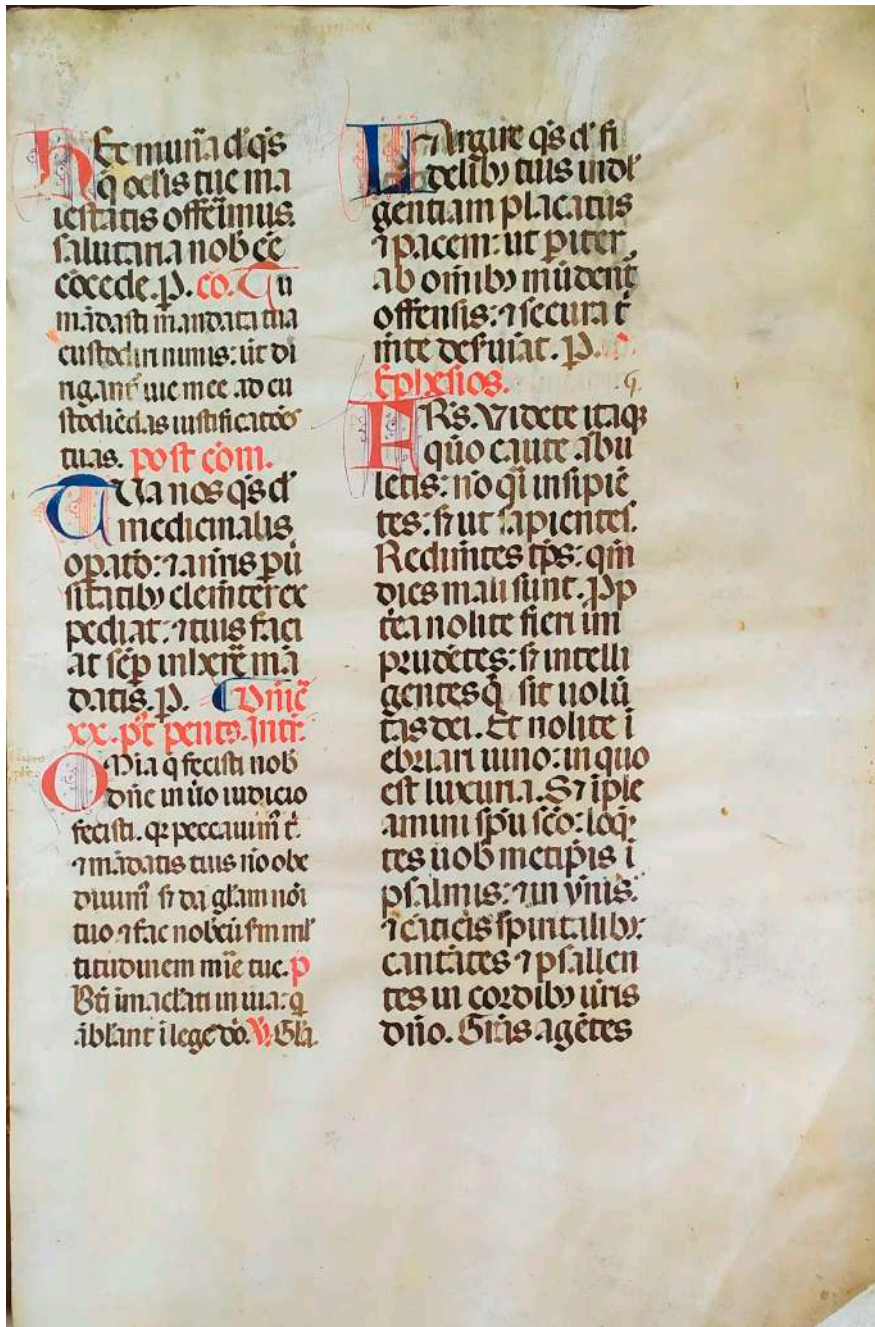 HEc mun̄a d̄ q̄s
q̄ oc̄lis tue ma
iestatis offerimus.
salutaria nob̄ eē
cōcede. P. cō. Tu
mādasti mandata tua
custodiri nimis: ut̄ di
rigant᷑ uie mee ad cu
stodiēdas iustificatōēs
tuas. post cōm.
TUa nos q̄s d̄
medicinalis
opatō: ⁊ a nr̄is puͥ
sitatibꝫ clemēter ex
pediat: ⁊ tuis faci
at sēp inherē mā
datis. P. Dm̄c̄
xx. p̄t pent̄. Intr̄.
OMia q̄ fecisti nob̄
dn̄e in ūo iudicio
fecisti. qꝛ peccauim᷒ t̄.
⁊ mādatis tuis nō obe
diuim᷒ s̄ da gl̄am nōi
tuo ⁊ fac nob̄cū s̄m ml̄
titudinem mīe tue. p
Bt̄i īmacl̄ati in uia: q̄
ābl̄ant ī lege dō. V. Gl̄a.
LArgire q̄s d̄ fi
delibꝫ tuis indl̄
gentiam placatus
⁊ pacem: ut piter
ab om̄ibꝫ mūdent᷑
offensis: ⁊ secura t̄
m̄te deſuiāt. P.
Ephesios.
FRs̄. Videte itaqꝫ
quō caute ābu
letis: nō q̄i insipiē
tes: s̄ ut sapientes.
Redim̄tes tp̄s: qm̄
dies mali sunt. Pp
t̄ea nolite fieri im
prudētes: s̄ intelli
gentes q̄ sit uolū
tas dei. Et nolite ī
ebriari uino: in quo
est luxuria. S⁊ īple
amini sp̄u sc̄o: loq̄
tes uob̄ metip̄is ī
psalmis: ⁊ in ymis:
⁊ cāticis spiritalibꝫ:
cantātes ⁊ psallen
tes in cordibꝫ ur̄is
dn̄o. Gr̄as agētes